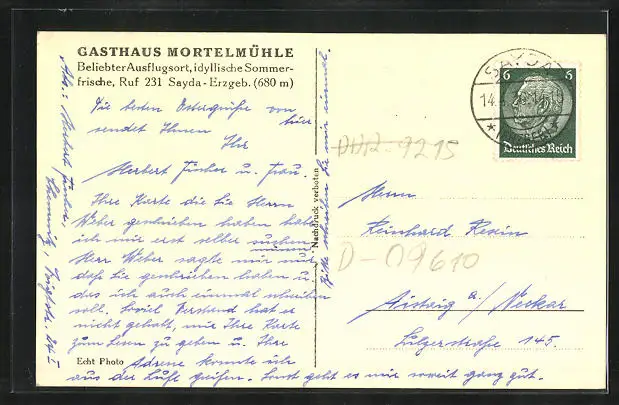 GASTHAUS MORTELMÜHLE
Beliebter Ausflugsort, idyllische Sommer-
frische, Ruf 231 Sayda - Erzgeb. (680 m)
Die besten Ostergrüße von
hier
sendet Ihnen
Ihr
Herbert Fischer u. Frau.
Ihre Karte die Sie Herrn
Weber geschrieben haben
ich mir erst selber suchen,
Herr Weber sagte mir nur
daß Sie geschrieben haben u.
das ich auch einmal schreiben
soll. Soviel Verstand hat er
nicht gehabt, mir Ihre Karte
zum Lesen zu geben u. Ihre
Adresse konnte ich
aus der Luft greifen. Sonst geht es mir soweit ganz gut.
Bitte schreiben Sie mir einmal.
Abs.: Herbert Fischer,
Echt Photo
Nachdruck verboten
SAYDA
14.
6 6
Deutsches Reich
9215
Herrn
Reinhard
D-09610
a/ Neckar
145.